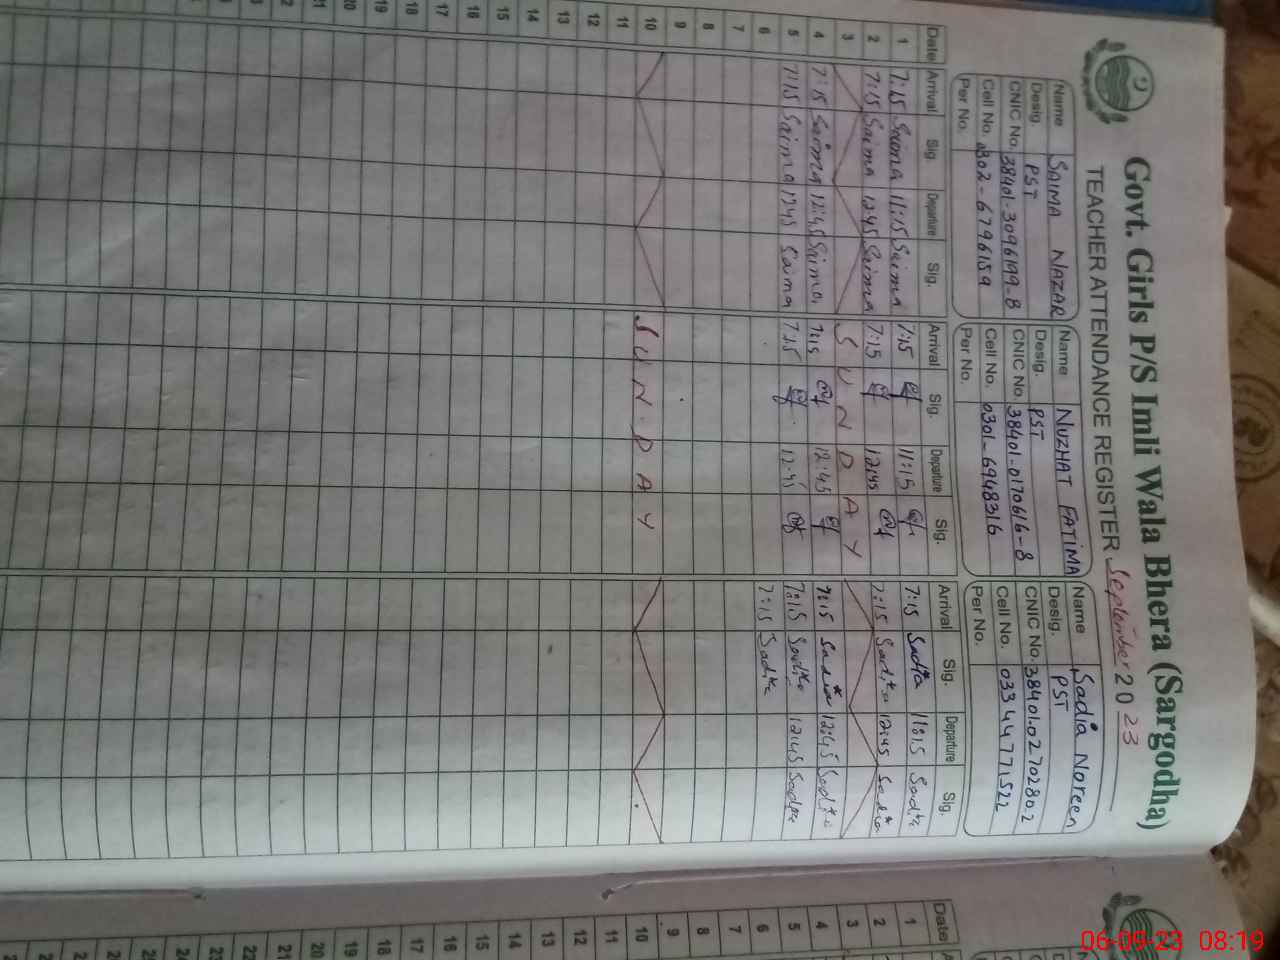 Govt. Girls P/S Imli Wala Bhera (Sargodha)
TEACHER ATTENDANCE REGISTER September 2023
Name SAIMA NAZAR Name NUZHAT FATIMA Name Sadia Noreen
Desig. PST Desig. PST Desig. PST
CNIC No. 38401-3096199-8 CNIC No. 38401-0170616-8 CNIC No. 38401.0270280.2
Cell No. 0302-6796159 Cell No. 0301-6948316 Cell No. 03344771522
Per No. Per No. Per No.
Date Arrival Sig. Departure Sig. Arrival Sig. Departure Sig. Arrival Sig. Departure Sig.
1 7:15 Saima 11:15 Saima 7:15 11:15 7:15 Sadia 11:15 Sadia
2 7:15 Saima 12:45 Saima 7:15 12:45 7:15 Sadia 12:45 Sadia
3 SUNDAY
4 7:15 Saima 12:45 Saima 7:15 12:45 7:15 Sadia 12:45 Sadia
5 7:15 Saima 12:45 Saima 7:15 12:45 7:15 Sadia 12:45 Sadia
6 7:15 Sadia
7
8
9
10 SUN.DAY
11
12
13
14
15
16
17
18
19
20
21
22
Date
1
2
3
4
5
6
7
8
9
10
11
12
13
14
15
16
17
18
19
20
21
22
23
24
25
26
27
06-09-23 08:19